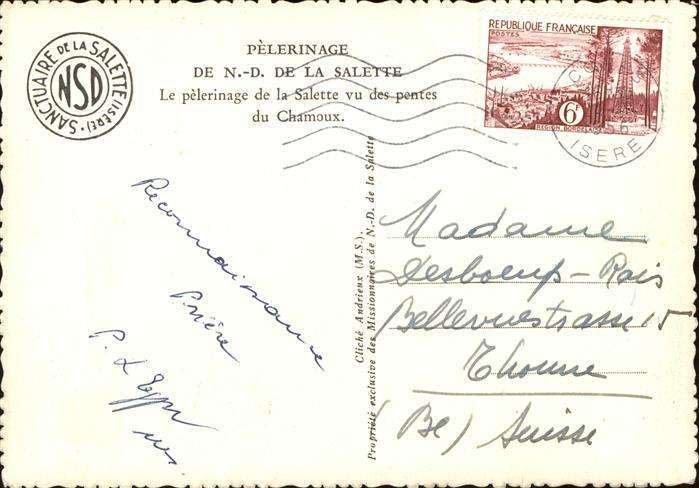 SANCTUAIRE DE LA SALETTE (ISÈRE).
NSD
PÈLERINAGE
DE N.-D. DE LA SALETTE
Le pèlerinage de la Salette vu des pentes
du Chamoux.
REPUBLIQUE FRANÇAISE
POSTES
6F
REGION BORDELAISE
ISERE
Reconnaissance
Prière
P.
Cliché Andrieux (M.S.).
Propriété exclusive des Missionnaires de N.-D. de la Salette
Madame
Desboeufs-Rais
Bellevuestrasse 15
Thoune
(Be) Suisse